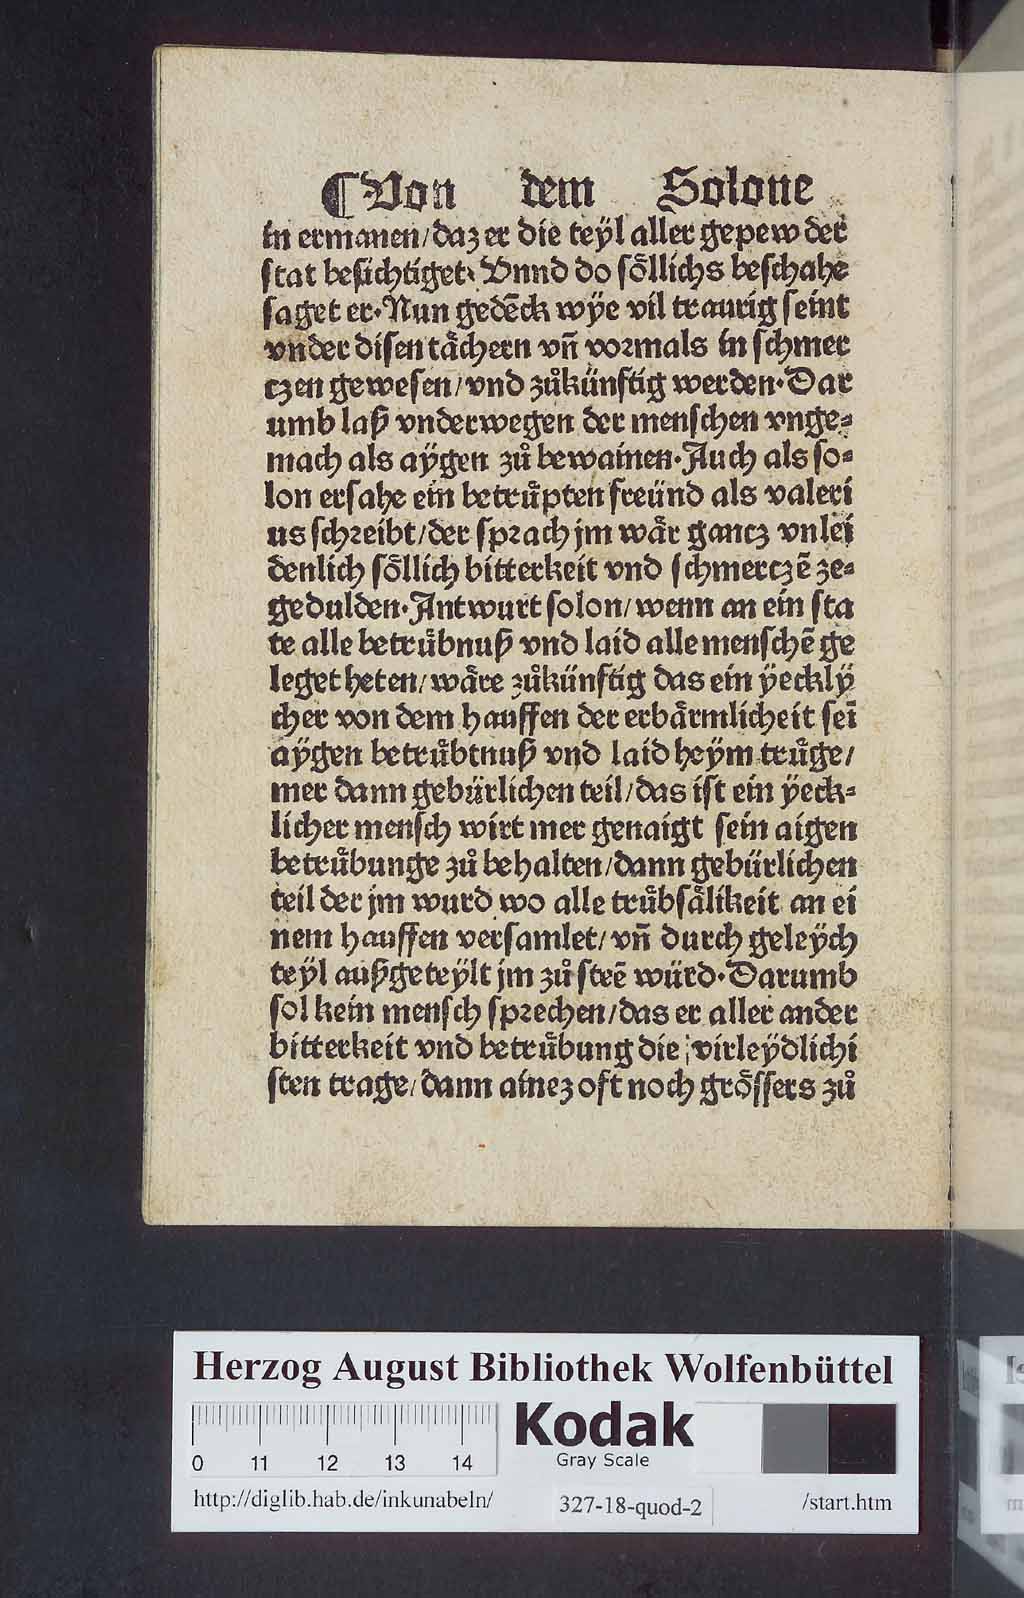 ¶Von dem Solone
in ermanen/daz er die teÿl aller gepew der
stat besichtiget. Vnnd do soͤllichs beschahe
saget er. Nun gedēck wÿe vil traurig seint
vnder disen taͤchern vn̄ vormals in schmer
czen gewesen/vnd zuͦkünftig werden. Dar
umb laß vnderwegen der menschen vnge-
mach als aÿgen zuͦ bewainen. Auch als so-
lon ersahe ein betruͤpten freünd als valeri
us schreibt/der sprach jm waͤr gancz vnlei
denlich soͤllich bitterkeit vnd schmerczē ze-
gedulden. Antwurt solon/wenn an ein sta
te alle betruͤbnuß vnd laid alle menschē ge
leget heten/waͤre zuͦkünftig das ein ÿecklÿ
cher von dem hauffen der erbaͤrmlicheit seī
aÿgen betruͤbtnuß vnd laid heÿm truͤge/
mer dann gebürlichen teil/das ist ein ÿeck-
licher mensch wirt mer genaigt sein aigen
betruͤbunge zuͦ behalten/dann gebürlichen
teil der jm wurd wo alle truͤbsaͤlikeit an ei
nem hauffen versamlet/vn̄ durch geleÿch
teÿl außgeteÿlt jm zuͦ steē würd. Darumb
sol kein mensch sprechen/das er aller ander
bitterkeit vnd betruͤbung die virleÿdlichi
sten trage/dann ainez oft noch groͤssers zuͦ
Herzog August Bibliothek Wolfenbüttel
Kodak
Gray Scale
0 11 12 13 14
http://diglib.hab.de/inkunabeln/ 327-18-quod-2 /start.htm